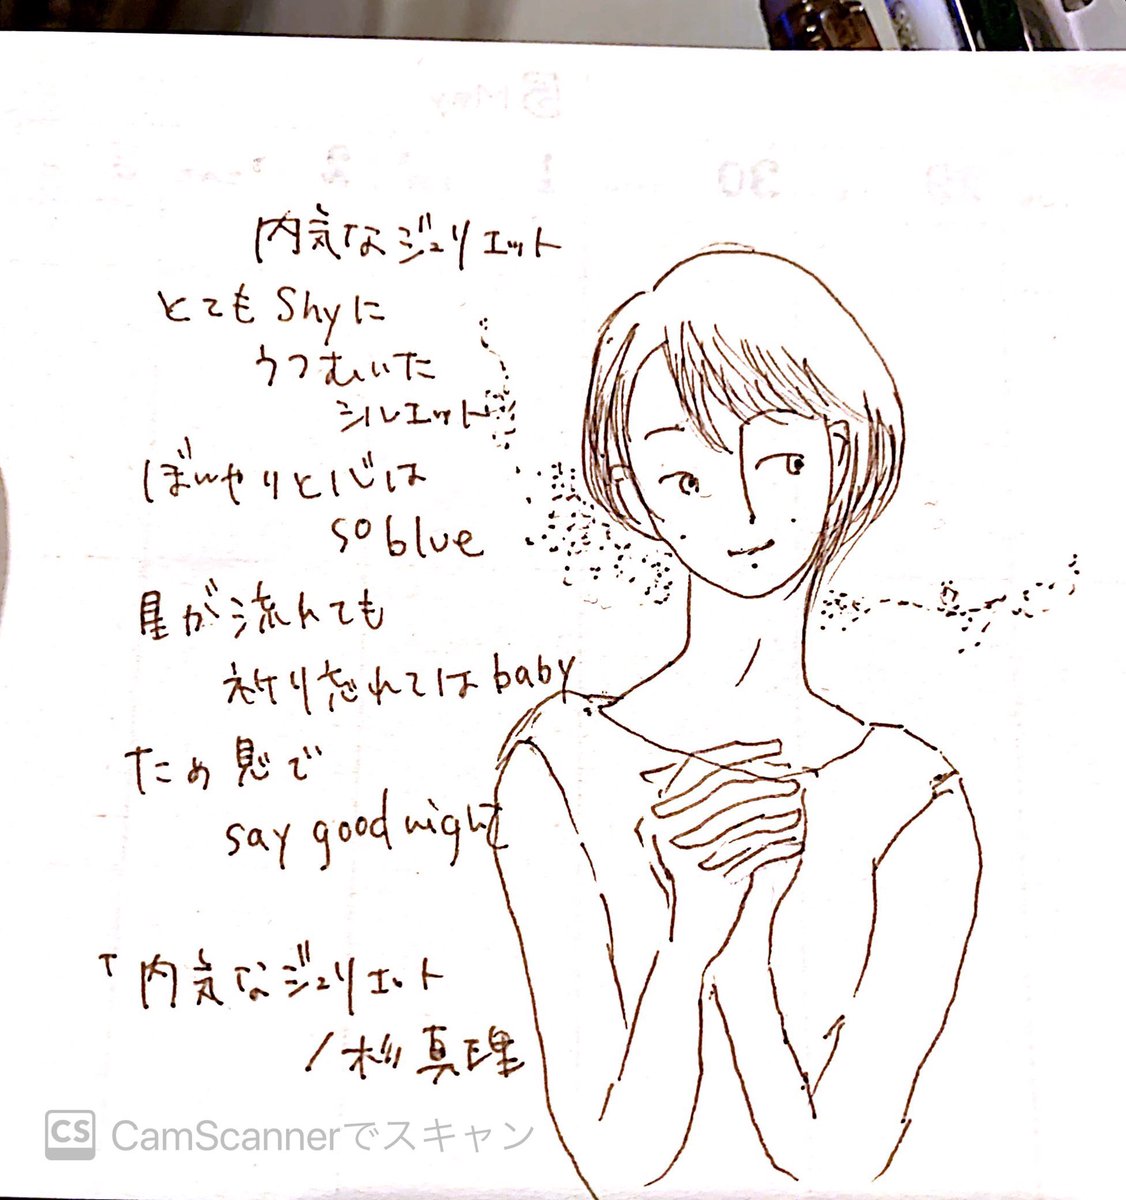 内気なジュリエット
とてもShyに
うつむいた
シルエット
ぼんやりと心は
so blue
星が流れても
祈り忘れてはbaby
ため息で
say good night
「内気なジュリエット
／杉真理
CS CamScannerでスキャン